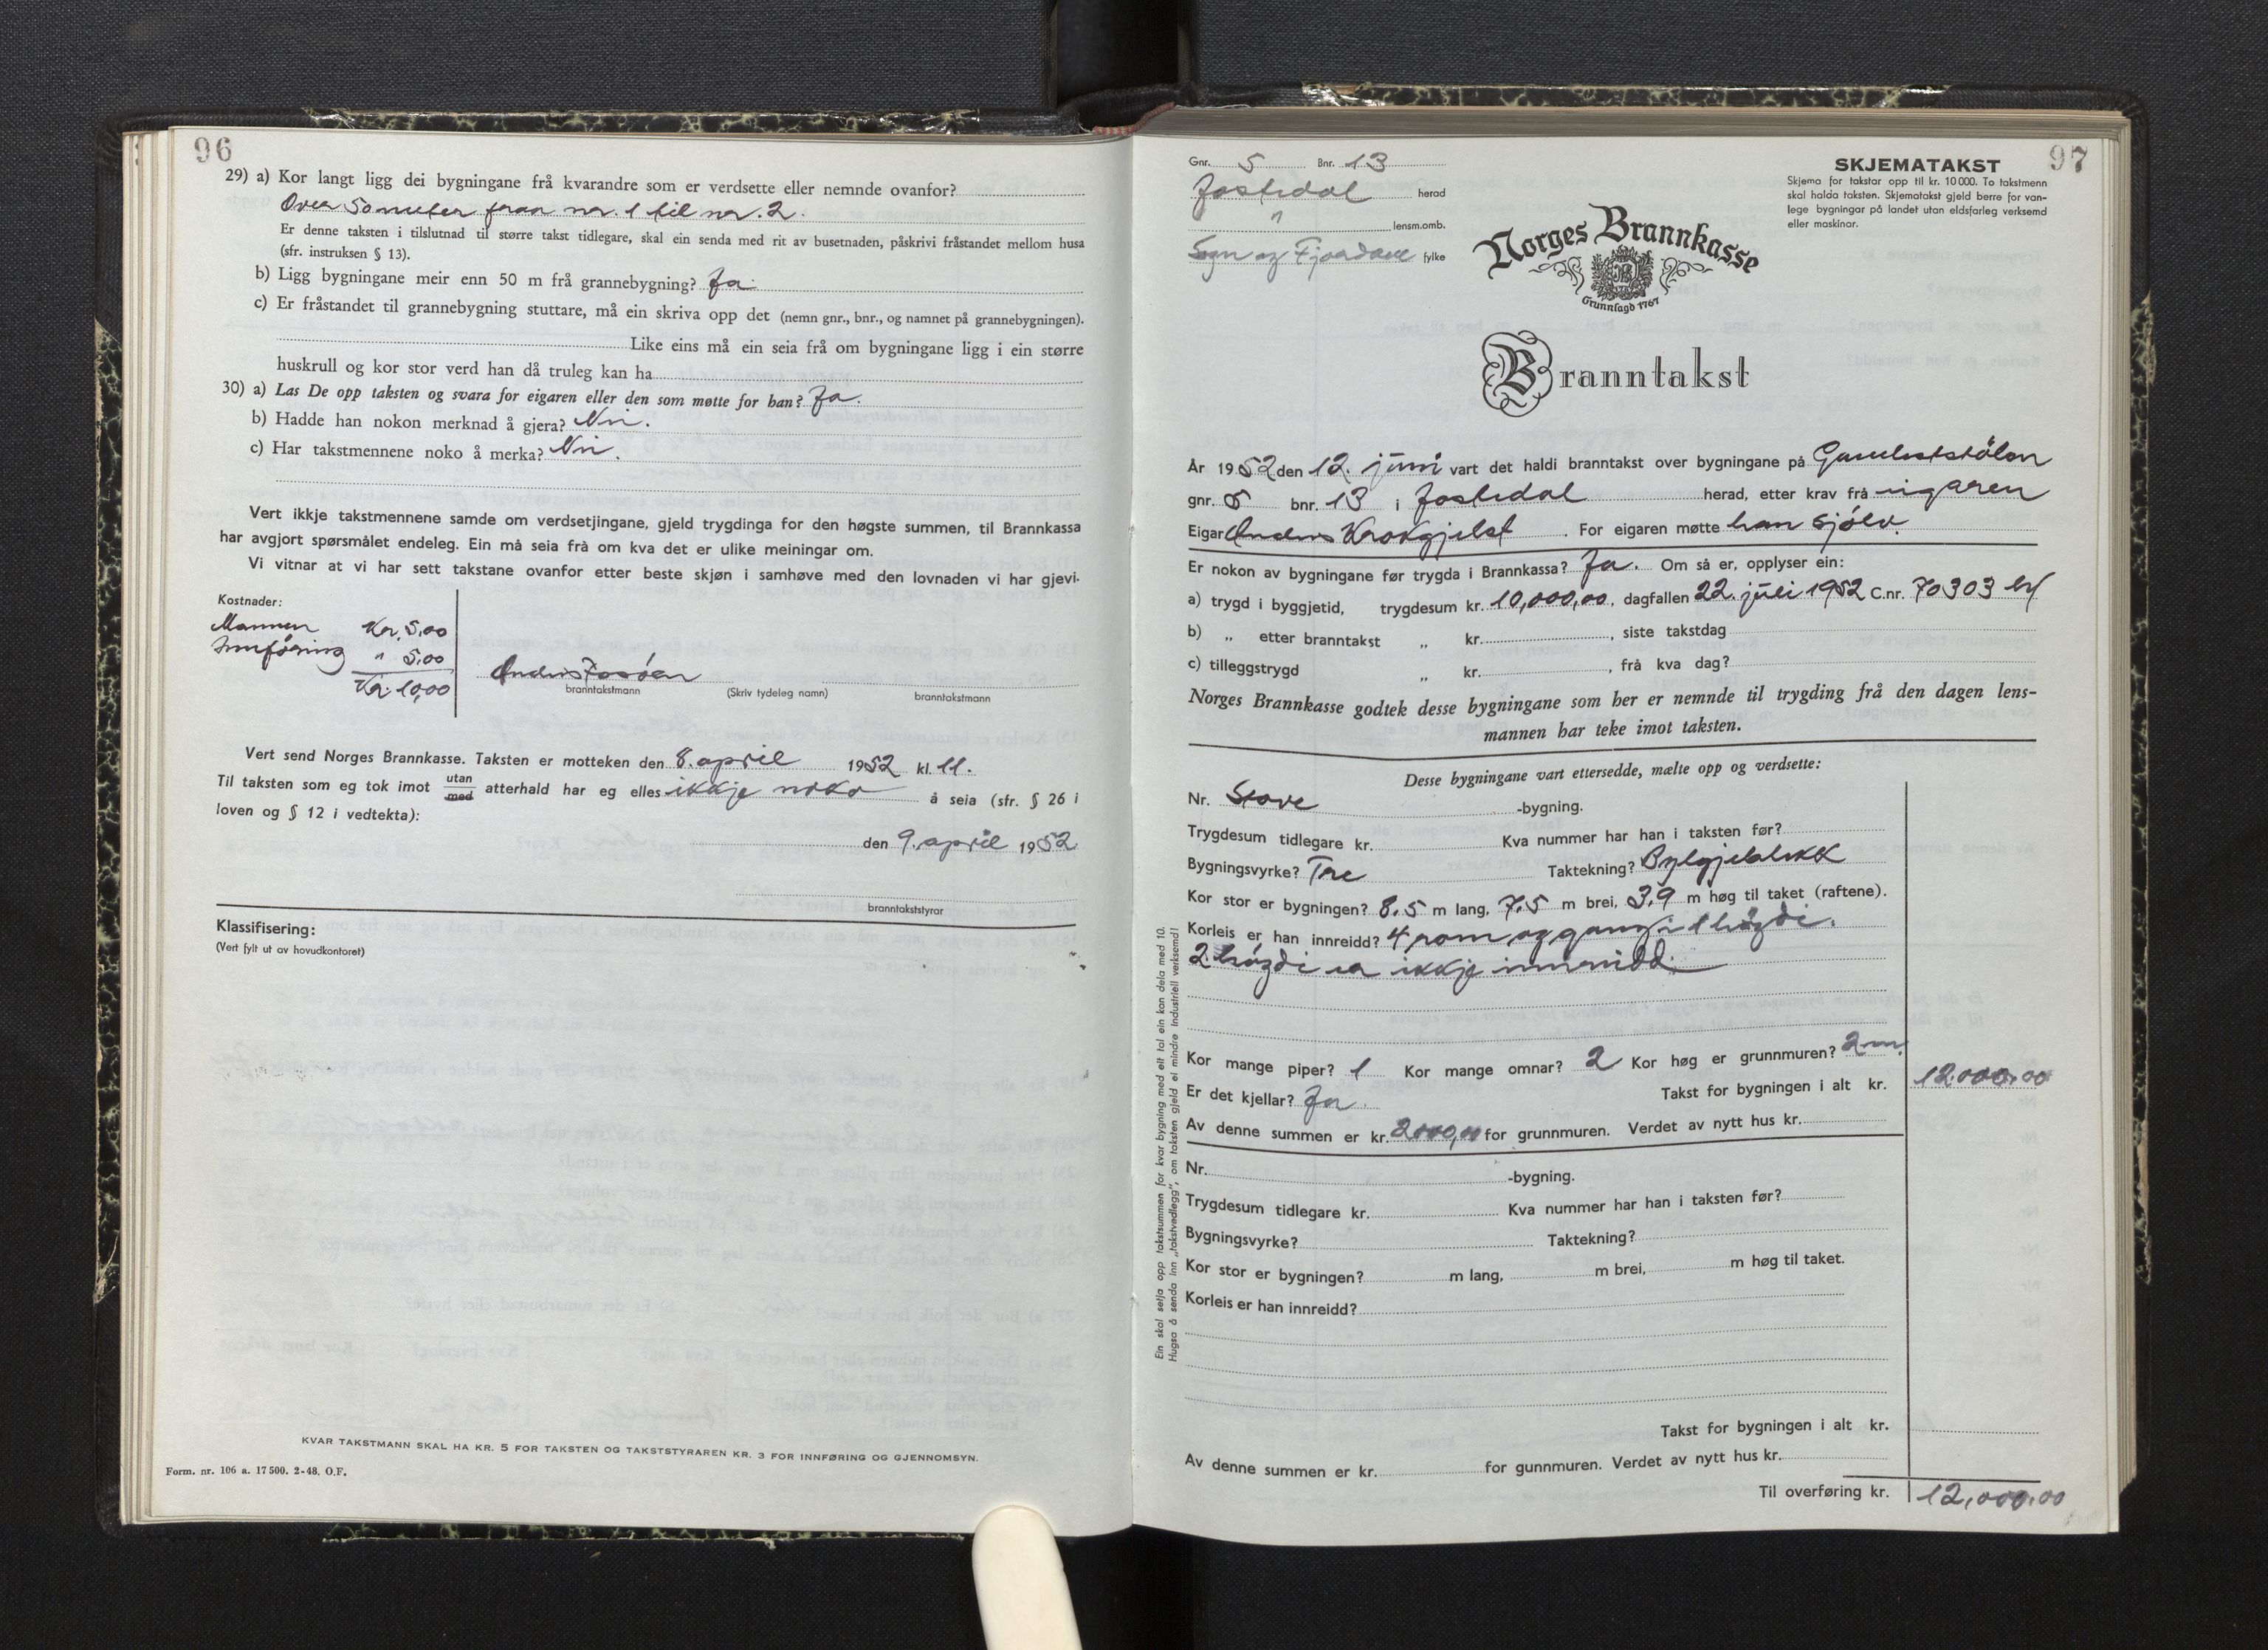 96
29) a) Kor langt ligg dei bygningane frå kvarandre som er verdsette eller nemnde ovanfor?
Over 50 meter fraa nr. 1 til nr. 2.
Er denne taksten i tilslutnad til større takst tidlegare, skal ein senda med rit av busetnaden, påskrivi fråstandet mellom husa
(sfr. instruksen § 13).
b) Ligg bygningane meir enn 50 m frå grannebygning? Ja.
c) Er fråstandet til grannebygning stuttare, må ein skriva opp det (nemn gnr., bnr., og namnet på grannebygningen).
Like eins må ein seia frå om bygningane ligg i ein større
huskrull og kor stor verd han då truleg kan ha
30) a) Las De opp taksten og svara for eigaren eller den som møtte for han? Ja.
b) Hadde han nokon merknad å gjera? Nei.
c) Har takstmennene noko å merka? Nei.
Vert ikkje takstmennene samde om verdsetjingane, gjeld trygdinga for den høgste summen, til Brannkassa
har avgjort spørsmålet endeleg. Ein må seia frå om kva det er ulike meiningar om.
Vi vitnar at vi har sett takstane ovanfor etter beste skjøn i samhøve med den lovnaden vi har gjevi.
Kostnader:
Mannen Kr. 5,00
Innføring " 5,00
Kr. 10,00
Anders Fossøen
branntakstmann (Skriv tydeleg namn) branntakstmann
Vert send Norges Brannkasse. Taksten er motteken den 8. april 1952 kl. 11.
Til taksten som eg tok imot utan med atterhald har eg elles ikkje noko å seia (sfr. § 26 i
loven og § 12 i vedtekta):
den 9. april 1952
branntakststyrar
Klassifisering:
(Vert fylt ut av hovudkontoret)
KVAR TAKSTMANN SKAL HA KR. 5 FOR TAKSTEN OG TAKSTSTYRAREN KR. 3 FOR INNFØRING OG GJENNOMSYN.
Form. nr. 106 a. 17500. 2-48. O.F.
97
Gnr. 5 Bnr. 13
Jostedal herad
" lensm.omb.
Sogn og Fjordane fylke
SKJEMATAKST
Skjema for takstar opp til kr. 10 000. To takstmenn
skal halda taksten. Skjematakst gjeld berre for van-
lege bygningar på landet utan eldsfarleg verksemd
eller maskinar.
Norges Brannkasse
Grunnlagd 1767
Branntakst
År 1952 den 12. juni vart det haldi branntakst over bygningane på
gnr. 5 bnr. 13 i Jostedal herad, etter krav frå eigaren
Eigar Anders Krokgjelet. For eigaren møtte han sjølv.
Er nokon av bygningane før trygda i Brannkassa? Ja. Om så er, opplyser ein:
a) trygd i byggjetid, trygdesum kr. 10,000,00, dagfallen 22. juli 1952 C.nr. 70303
b) „ etter branntakst „ kr. , siste takstdag
c) tilleggstrygd „ kr. , frå kva dag?
Norges Brannkasse godtek desse bygningane som her er nemnde til trygding frå den dagen lens-
mannen har teke imot taksten.
Desse bygningane vart ettersedde, mælte opp og verdsette:
Nr. Stove -bygning.
Trygdesum tidlegare kr. Kva nummer har han i taksten før?
Bygningsvyrke? Tre Taktekning? Bylgjeblekk
Kor stor er bygningen? 8.5 m lang, 7.5 m brei, 3,9 m høg til taket (raftene).
Korleis er han innreidd? 4 rom og gang i 1 høgdi.
2 høgdi er ikkje innreidd.
Kor mange piper? 1 Kor mange omnar? 2 Kor høg er grunnmuren? 2 m.
Er det kjellar? Ja. Takst for bygningen i alt kr. 12.000,00
Av denne summen er kr. 2000,00 for grunnmuren. Verdet av nytt hus kr.
Nr. -bygning.
Trygdesum tidlegare kr. Kva nummer har han i taksten før?
Bygningsvyrke? Taktekning?
Kor stor er bygningen? m lang, m brei, m høg til taket.
Korleis er han innreidd?
Takst for bygningen i alt kr.
Av denne summen er kr. for gunnmuren. Verdet av nytt hus kr.
Til overføring kr. 12,000,00
Ein skal setja opp takstsummen for kvar bygning med eit tal ein kan dela med 10.
Hugsa å senda inn „takstvedlegg", om taksten gjeld ei mindre industriell verksemd!